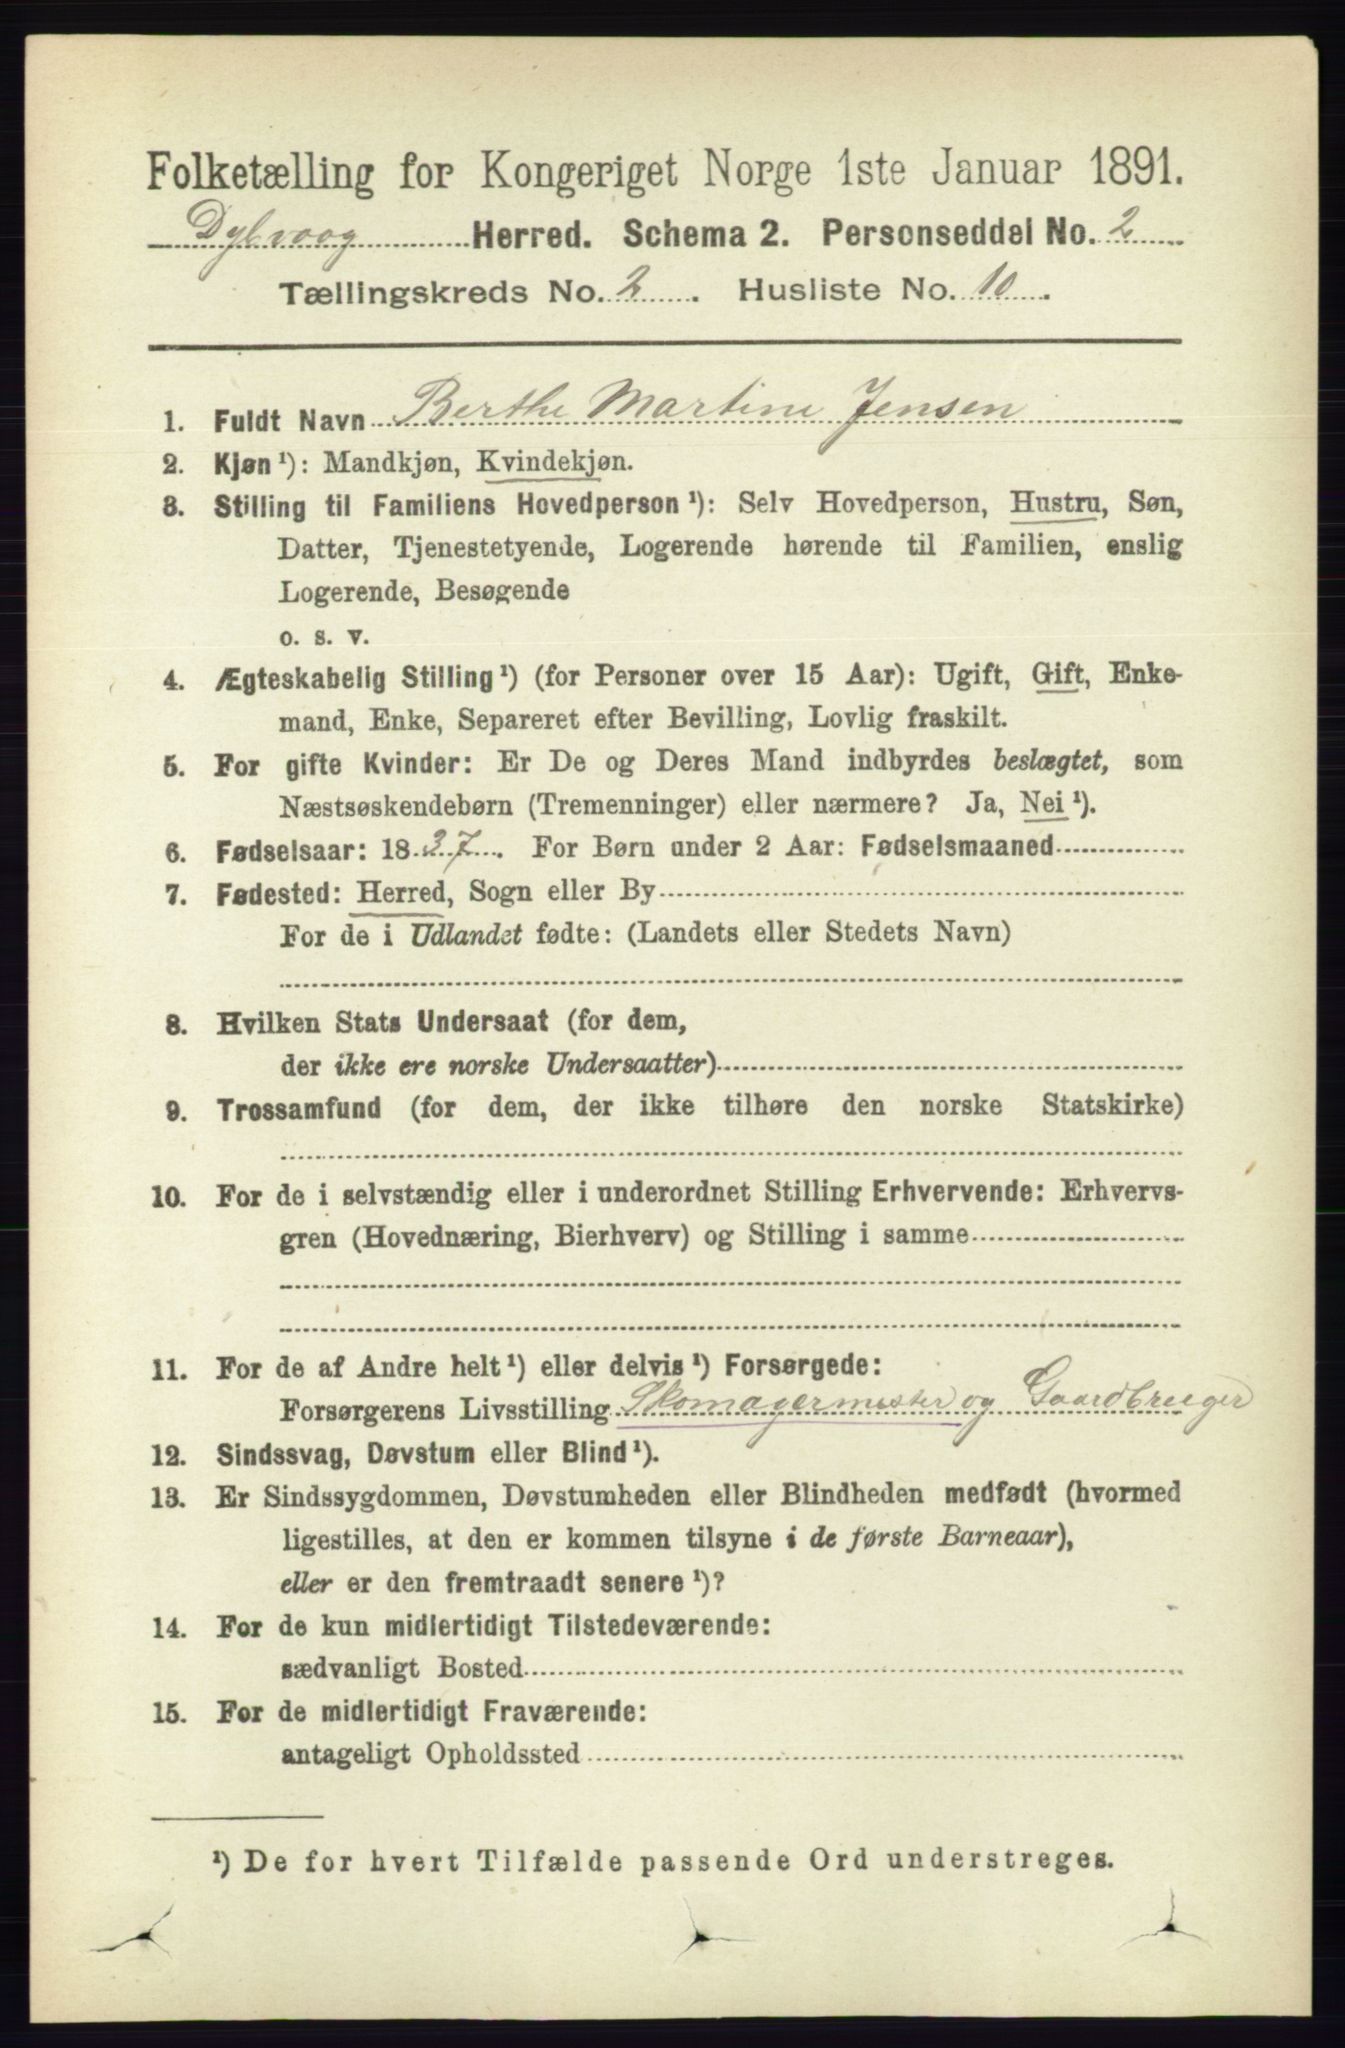 Folketælling for Kongeriget Norge 1ste Januar 1891.
Dybvaag Herred. Schema 2. Personseddel No. 2
Tællingskreds No. 2. Husliste No. 10.
1. Fuldt Navn Berthe Martine Jensen
2. Kjøn ¹): Mandkjøn, Kvindekjøn.
3. Stilling til Familiens Hovedperson ¹): Selv Hovedperson, Hustru, Søn,
Datter, Tjenestetyende, Logerende hørende til Familien, enslig
Logerende, Besøgende
o. s. v.
4. Ægteskabelig Stilling ¹) (for Personer over 15 Aar): Ugift, Gift, Enke-
mand, Enke, Separeret efter Bevilling, Lovlig fraskilt.
5. For gifte Kvinder: Er De og Deres Mand indbyrdes beslægtet, som
Næstsøskendebørn (Tremenninger) eller nærmere? Ja, Nei ¹).
6. Fødselsaar: 1837. For Børn under 2 Aar: Fødselsmaaned
7. Fødested: Herred, Sogn eller By
For de i Udlandet fødte: (Landets eller Stedets Navn)
8. Hvilken Stats Undersaat (for dem,
der ikke ere norske Undersaatter)
9. Trossamfund (for dem, der ikke tilhøre den norske Statskirke)
10. For de i selvstændig eller i underordnet Stilling Erhvervende: Erhvervs-
gren (Hovednæring, Bierhverv) og Stilling i samme
11. For de af Andre helt ¹) eller delvis ¹) Forsørgede:
Forsørgerens Livsstilling Skomagermester og Gaardbruger
12. Sindssvag, Døvstum eller Blind ¹).
13. Er Sindssygdommen, Døvstumheden eller Blindheden medfødt (hvormed
ligestilles, at den er kommen tilsyne i de første Barneaar),
eller er den fremtraadt senere ¹)?
14. For de kun midlertidigt Tilstedeværende:
sædvanligt Bosted
15. For de midlertidigt Fraværende:
antageligt Opholdssted
¹) De for hvert Tilfælde passende Ord understreges.